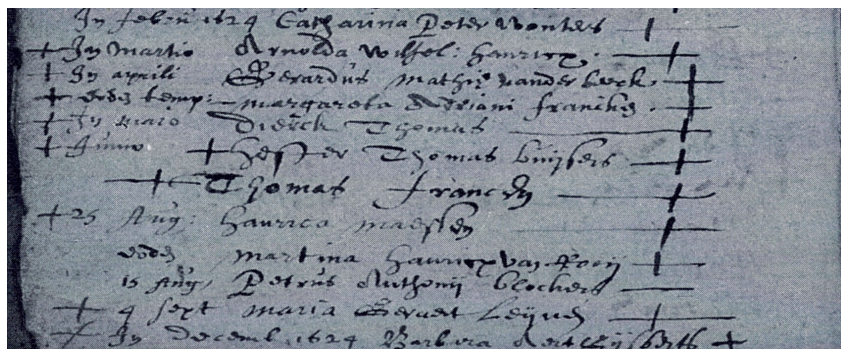 In febru 1624 Catharina Peter Wouters
In Martio Arnolda Henricx
In aprili Gerardus Mathijs vander beeck
eodem temp: margareta Adriani francken
In maio Dierck Thomas
Junio Hester Thomas Luijkers
Thomas francken
25 Aug: Henrica maessen
eodem martina Henricx van
15 Aug: Petrus Anthonij blockers
4 sept maria Geraert
In Decemb 1624 Barbara Aert